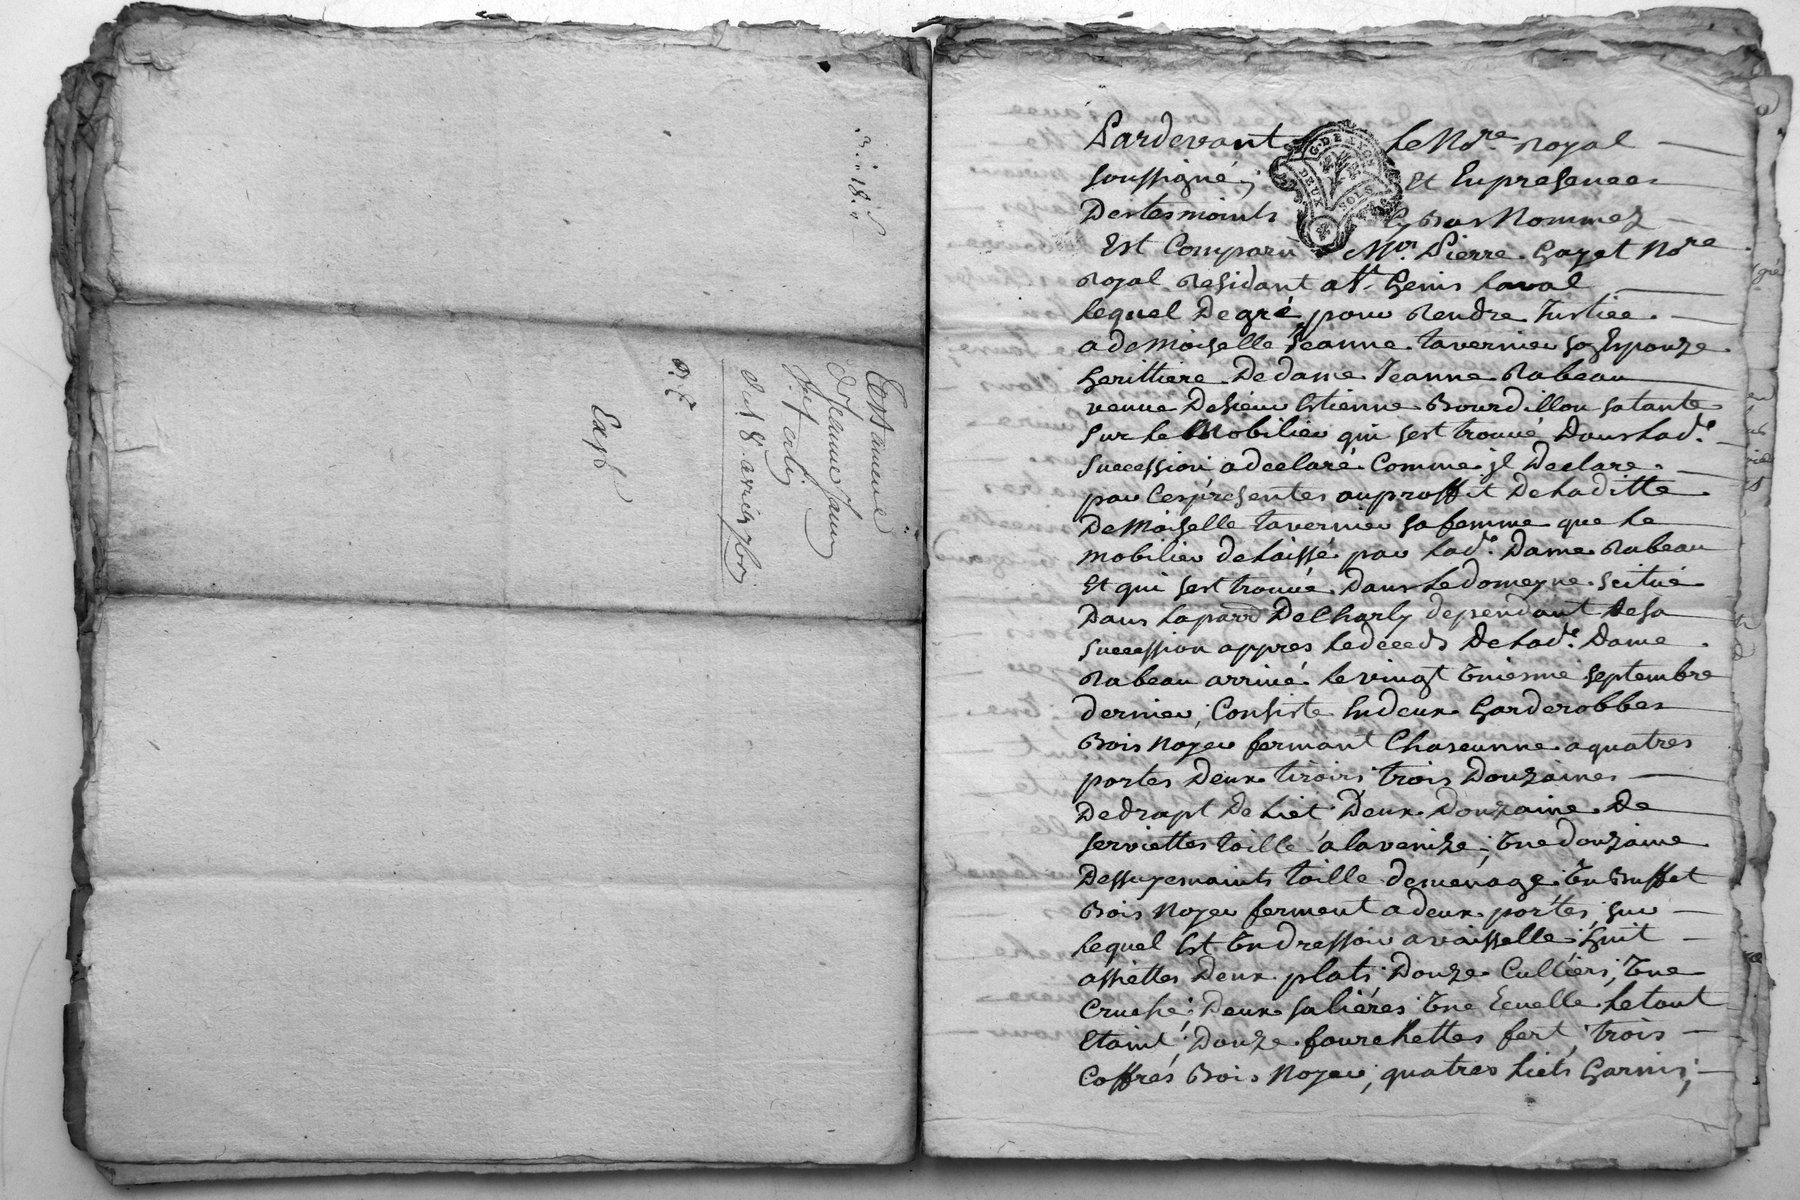 3 18
Testament
de Jeanne
du 18 avril
Exp
Pardevant Le No.re Royal
soussigné; Et En presences
Des tesmoints Cy Bas Nommez
Est Comparu Mr. Pierre Gayet No.re
Royal Residant a St. Genis Laval
Lequel De gré, pour Rendre Justice
a demoiselle Jeanne tavernier son Epouze
heritiere De dame Jeanne Rabeau
veuve De sieur Etienne Bourdillon sa tante
sur Le Mobilier qui s'est trouvé Dans Lad.e
succession a declaré Comme jl Declare
par Ces presentes au proffit De Laditte
DeMoiselle tavernier sa femme que Le
mobilier delaissé par Lad.e Dame Rabeau
Et qui s'est trouvé Dans Le domeyne scitué
Dans La parr. De Charly dependant de sa
succession appres Le decedz De Lad.e Dame
Rabeau arrivé Le vingt Uniesme septembre
dernier, Consiste En deux Garderobbes
Bois Noyer fermant Chascunne a quatres
portes Deux tiroirs, trois Douzaines
De drapt De Liet Deux Douzaine De
serviettes toille a la venize; Une douzaine
D'essuyemaints toille de menage, Un Buffet
Bois Noyer ferment a deux portes, sur
Lequel Est Un dressoir a vaisselle, huit
assiettes Deux plats Douze Culliers, Une
Cruche, Deux salieres Une Ecuelle Le tout
Etaint, Douze fourchettes fert, trois
Coffres Bois Noyer, quatres Liets Garnis;